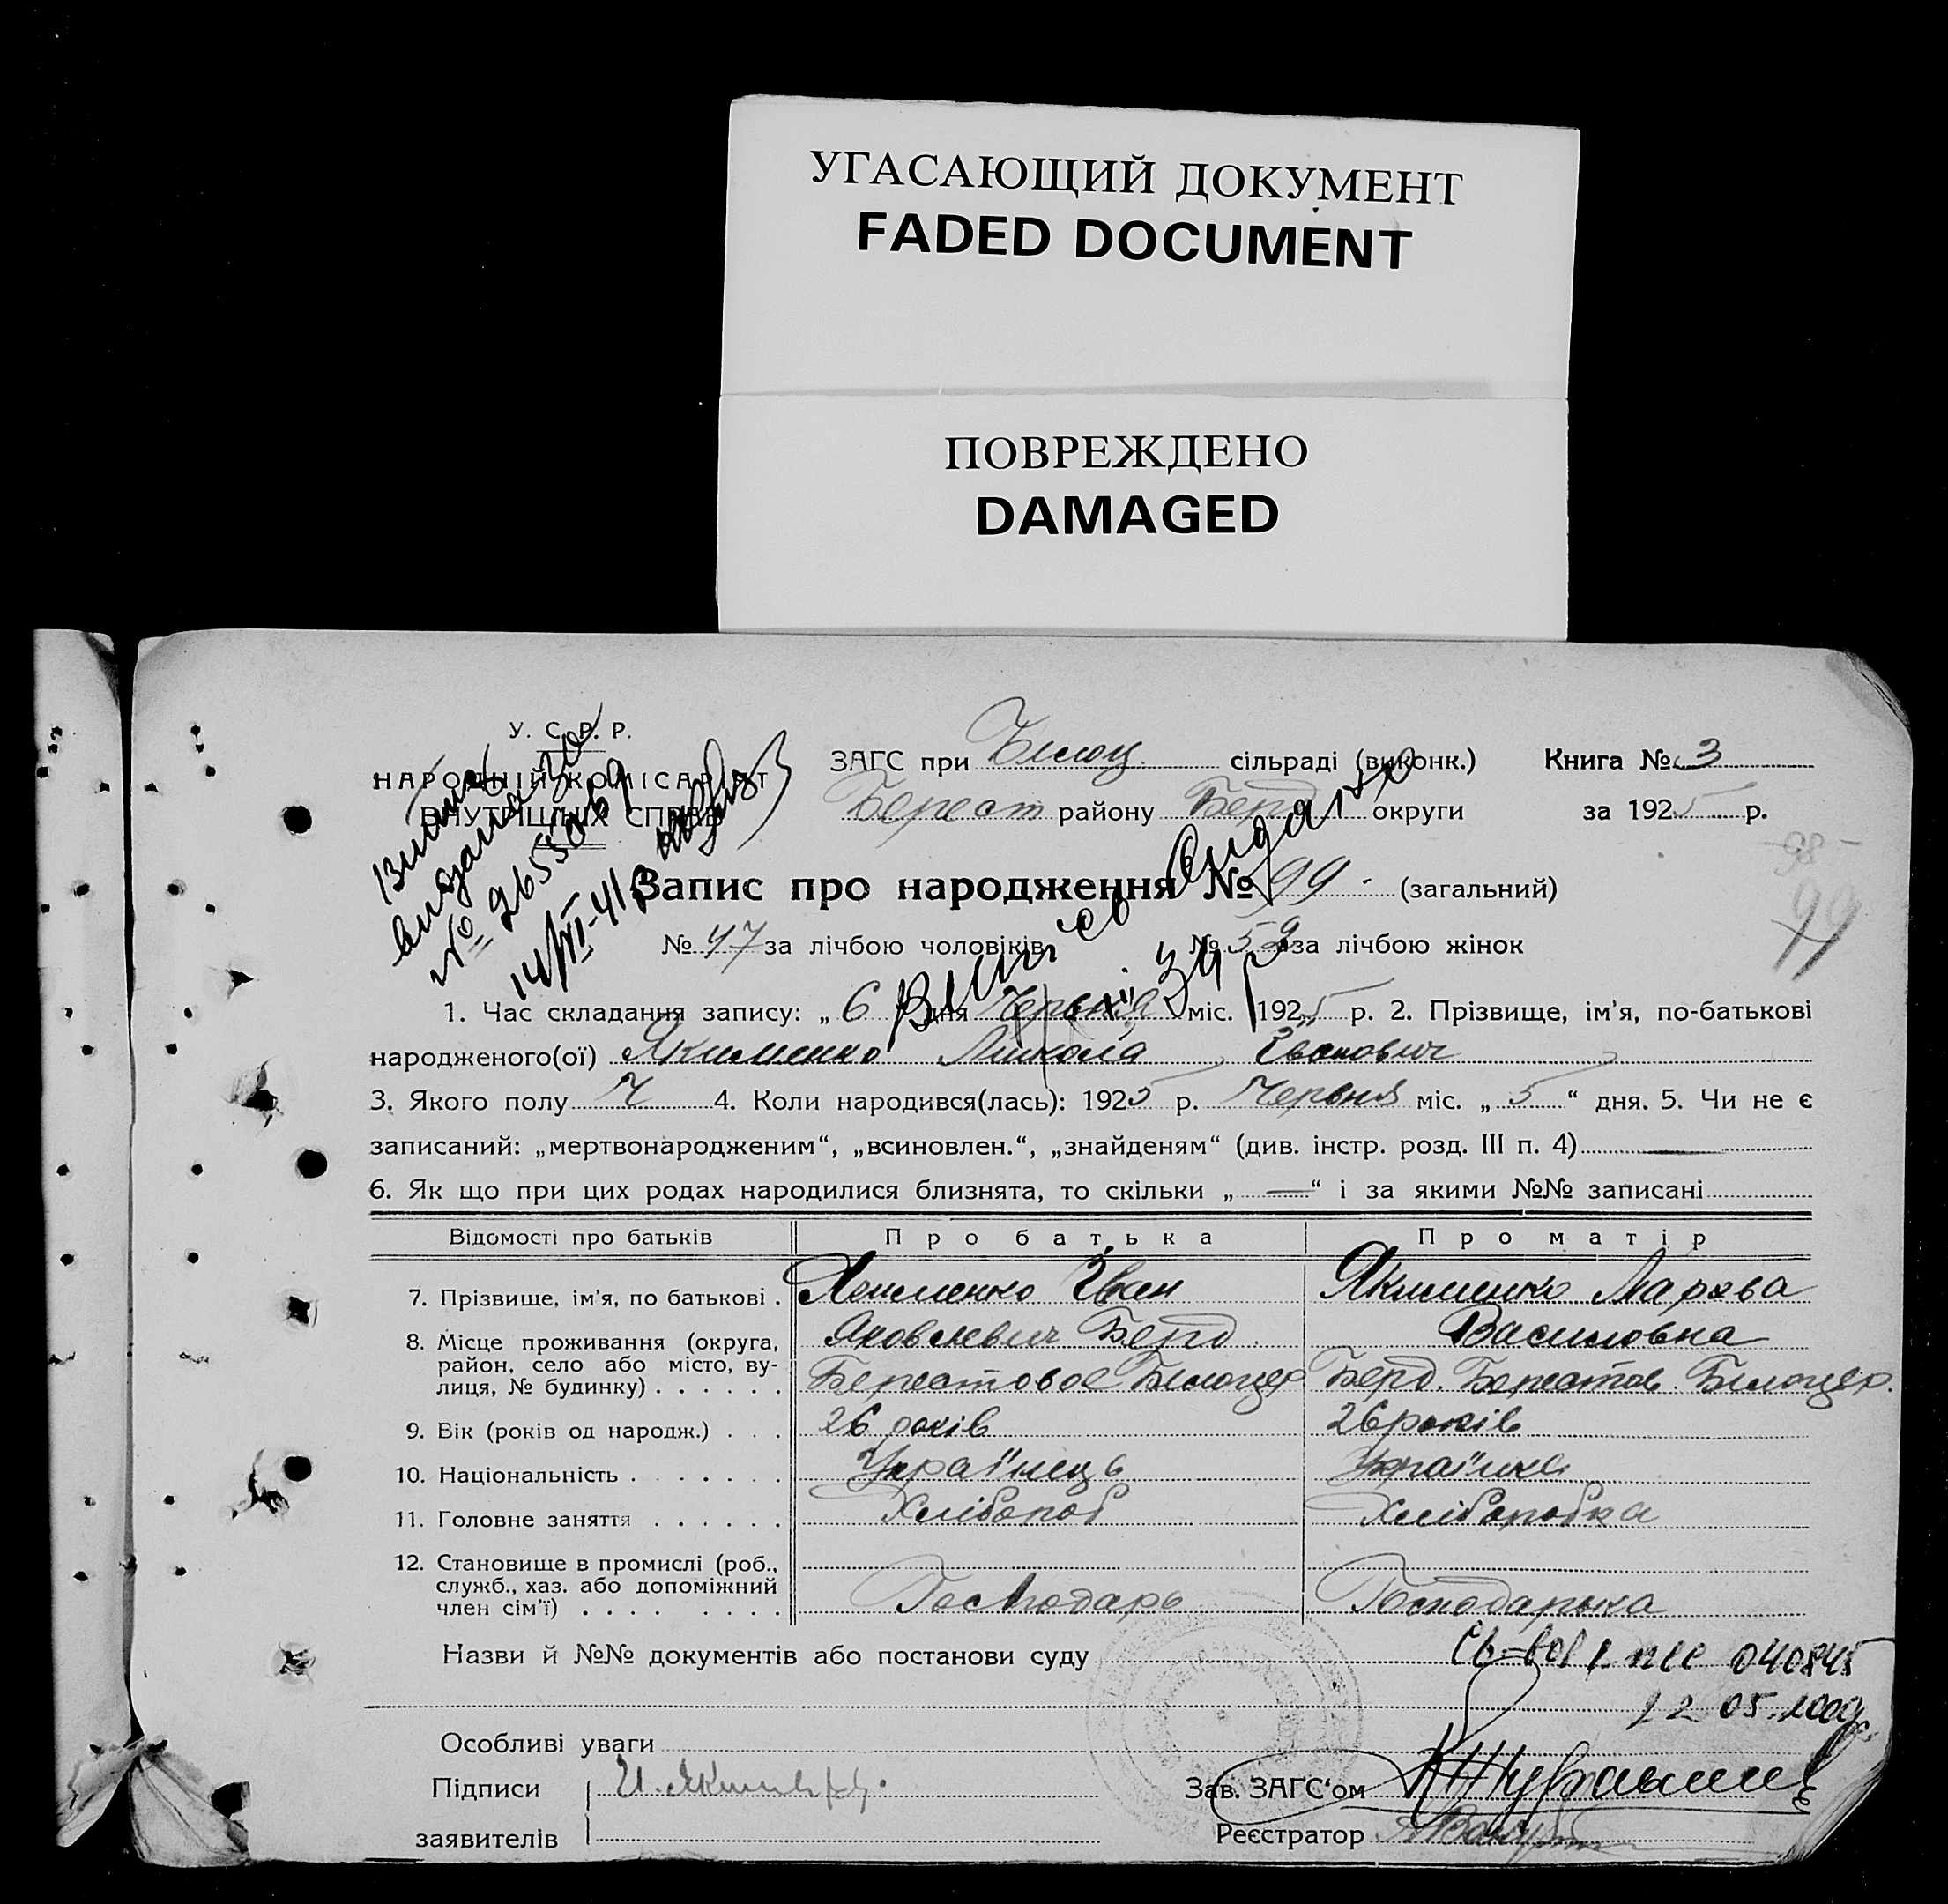 УГАСАЮЩИЙ ДОКУМЕНТ
FADED DOCUMENT
ПОВРЕЖДЕНО
DAMAGED
У. С. Р. Р.
НАРОДНІЙ КОМІСАРІЯТ
ВНУТРІШНІХ СПРАВ
видана
№ 265
14/VI-41
ЗАГС при Білоц. сільраді (виконк.) Книга № 3
Берест району Берд округи за 1925 р.
98
99
Запис про народження № 99. (загальний)
№ 47 за лічбою чоловіків № 52 за лічбою жінок
1. Час складання запису: „ 6 дня Червня міс. 1925 р. 2. Прізвище, ім'я, по-батькові
народженого(ої) Якименко Микола Іванович
3. Якого полу Ч 4. Коли народився(лась): 1925 р. Червня міс. „ 5 “ дня. 5. Чи не є
записаний: „мертвонародженим“, „всиновлен.“, „знайденям“ (див. інстр. розд. III п. 4) —
6. Як що при цих родах народилися близнята, то скільки „ — “ і за якими №№ записані
Відомості про батьків Про батька Про матір
7. Прізвище, ім'я, по батькові . Якименко Іван Якименко Марфа
8. Місце проживання (округа, Яковлевич Берд. Василовна
район, село або місто, ву-
лиця, № будинку) . . . . . . Берестовое Білоцер Берд. Берестов. Білоцер.
9. Вік (років од народж.) . . . 26 років 26 років
10. Національність . . . . . . . Українець Українка
11. Головне заняття . . . . . . Хлібороб Хліборобка
12. Становище в промислі (роб.,
служб., хаз. або допоміжний
член сім'ї) . . . . . . . . Господарь Господарька
Назви й №№ документів або постанови суду 040845
22 05.2000
Особливі уваги
Підписи И. Зав. ЗАГС'ом
заявителів Реєстратор